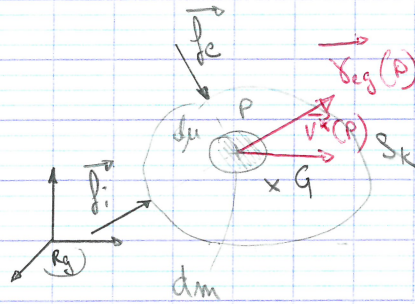 fe
γeg(P)
P
V*(P)
Sμ
Sk
fi
G
Rg
dm